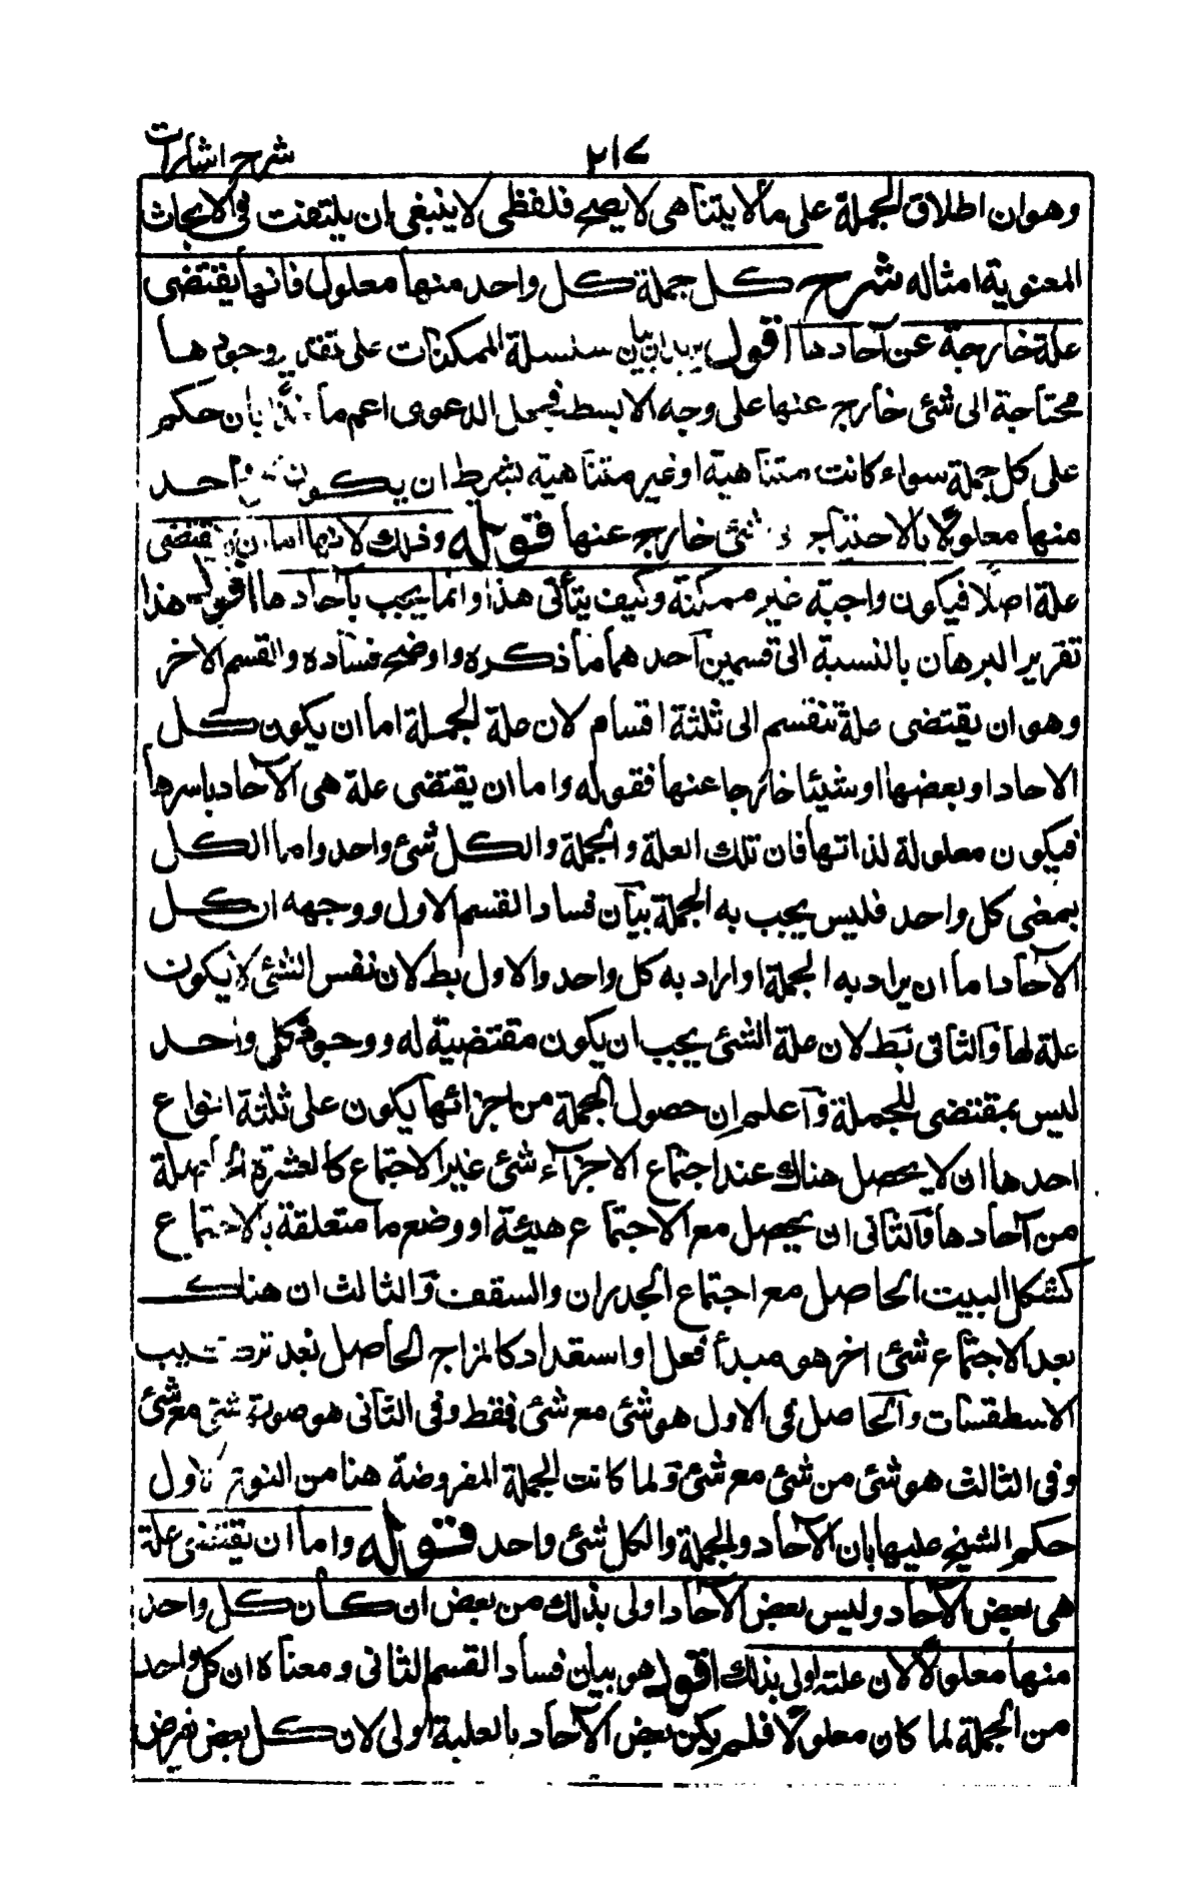 شرح اشارات ٢١٧
وهو ان اطلاق الجملة على ما لا يتناهى لا يصح فلفظى لا ينبغى ان يلتفت فى الابحاث
المعنوية امثاله شرح كل جملة كل واحد منها معلول فانها يقتضى
علة خارجة عن آحادها اقول يريد ان يبين سلسلة الممكنات على تقدير وجودها
محتاجة الى شئ خارج عنها على وجه الابسط فجعل الدعوى اعم بان حكم
على كل جملة سواء كانت متناهية او غير متناهية بشرط ان يكون واحد
منها معلولًا بالاحتياج شئ خارج عنها قوله وذلك لانها اما ان يقتضى
علة اصلًا فيكون واجبة غير ممكنة وكيف يتأتى هذا وانما يجب بآحادها اقول هذا
تقرير البرهان بالنسبة الى قسمين آحدهما ما ذكره واوضح فساده والقسم الاخر
وهو ان يقتضى علة تنقسم الى ثلثة اقسام لان علة الجملة اما ان يكون كل
الاحاد او بعضها او شيئا خارجا عنها فقوله واما ان يقتضى علة هى الآحاد باسرها
فيكون معلولة لذاتها فان تلك العلة والجملة والكل شئ واحد واما الكل
بمعنى كل واحد فليس يجب به الجملة بيآن فساد القسم الاول ووجهه ان كل
الآحاد اما ان يراد به الجملة او اراد به كل واحد والاول بط لان نفس الشئ لا يكون
علة لها وآلثانى بَط لان علة الشئ يجب ان يكون مقتضية له ووجود كل واحد
ليس بمقتضى للجملة وآعلم ان حصول الجملة من اجزائها يكون على ثلثة انواع
احدها ان لا يحصل هناك عند اجتماع الاجزآء شئ غير الاجتماع كالعشرة الحاصلة
من آحادها وآلثانى ان يحصل مع الاجتماع هيئة او وضع ما متعلقة بالاجتماع
كشكل البيت الحاصل مع اجتماع الجدران والسقف وآلثالث ان هناك
بعد الاجتماع شئ اخر هو مبدأ فعل او استعداد كالمزاج الحاصل بعد تركيب
الاسطقسات وآلحاصل فى الاول هو شئ مع شئ فقط وفى الثآنى هو صورة شئ مع شئ
وفى الثالث هو شئ من شئ مع شئ وَلما كانت الجملة المفروضة هنا من النوع الاول
حكم الشيخ عليها بان الآحاد والجملة والكل شئ واحد قوله واما ان يقتضى علة
هى بعض الآحاد وليس بعض الآحاد اولى بذلك من بعض ان كان كل واحد
منها معلولًا لان علته اولى بذلك اقول هو بيان فساد القسم الثانى ومعناه ان كل واحد
من الجملة لما كان معلولًا فلم يكن بعض الآحاد بالعلية اولى لان كل بعض يفرض